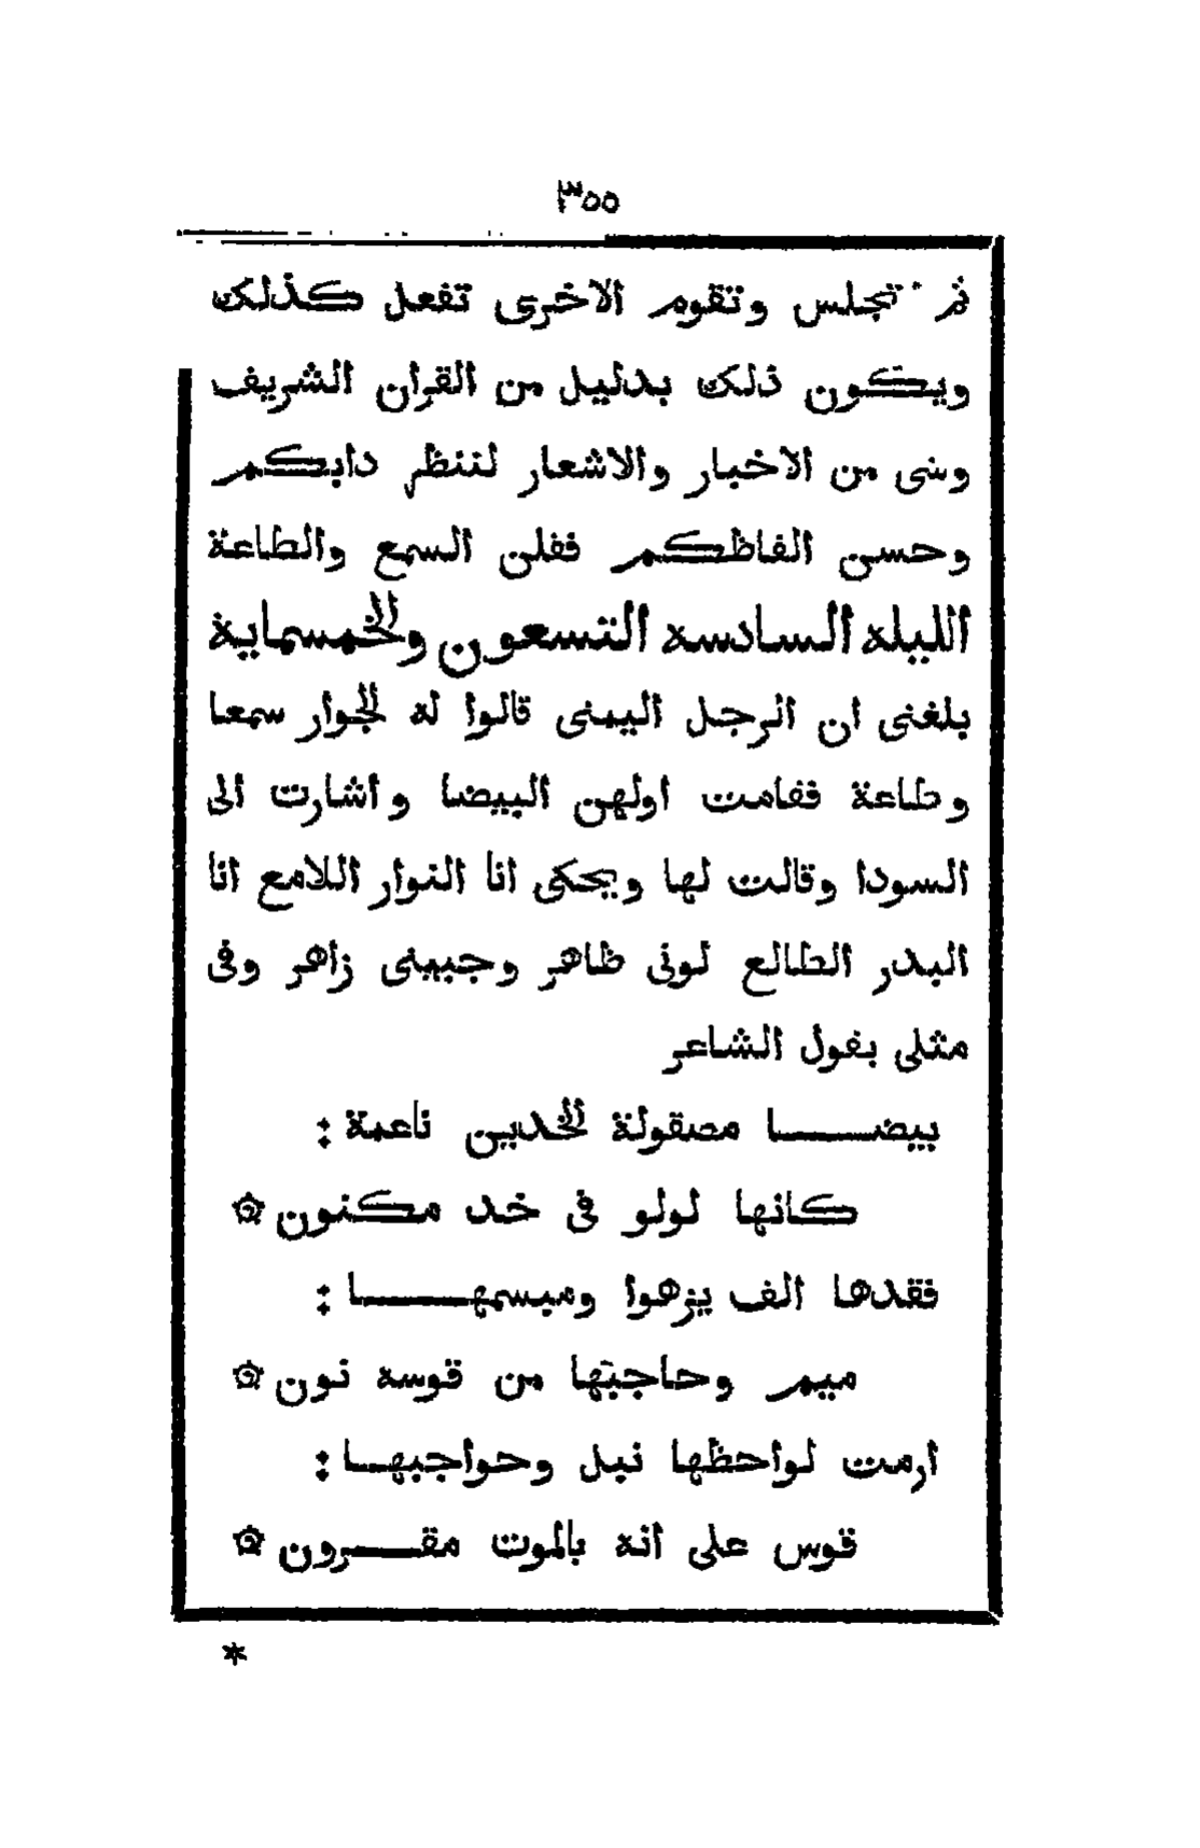 ٣٥٥
ثم تجلس وتقوم الاخرى تفعل كذلك
ويكون ذلك بدليل من القران الشريف
وشى من الاخبار والاشعار لننظر دابكم
وحسن الفاظكم فقلن السمع والطاعة
الليله السادسه التسعون والخمسماية
بلغنى ان الرجل اليمنى قالوا له الجوار سمعا
وطاعة فقامت اولهن البيضا واشارت الى
السودا وقالت لها ويحكى انا النوار اللامع انا
البدر الطالع لونى ظاهر وجبينى زاهر وفى
مثلى يقول الشاعر
بيضا مصقولة الخدين ناعمة :
كانها لولو فى خد مكنون ۞
فقدها الف يزهوا وميسمها :
ميم وحاجبها من قوسه نون ۞
ارمت لواحظها نبل وحواجبها :
قوس على انه بالموت مقرون ۞
*